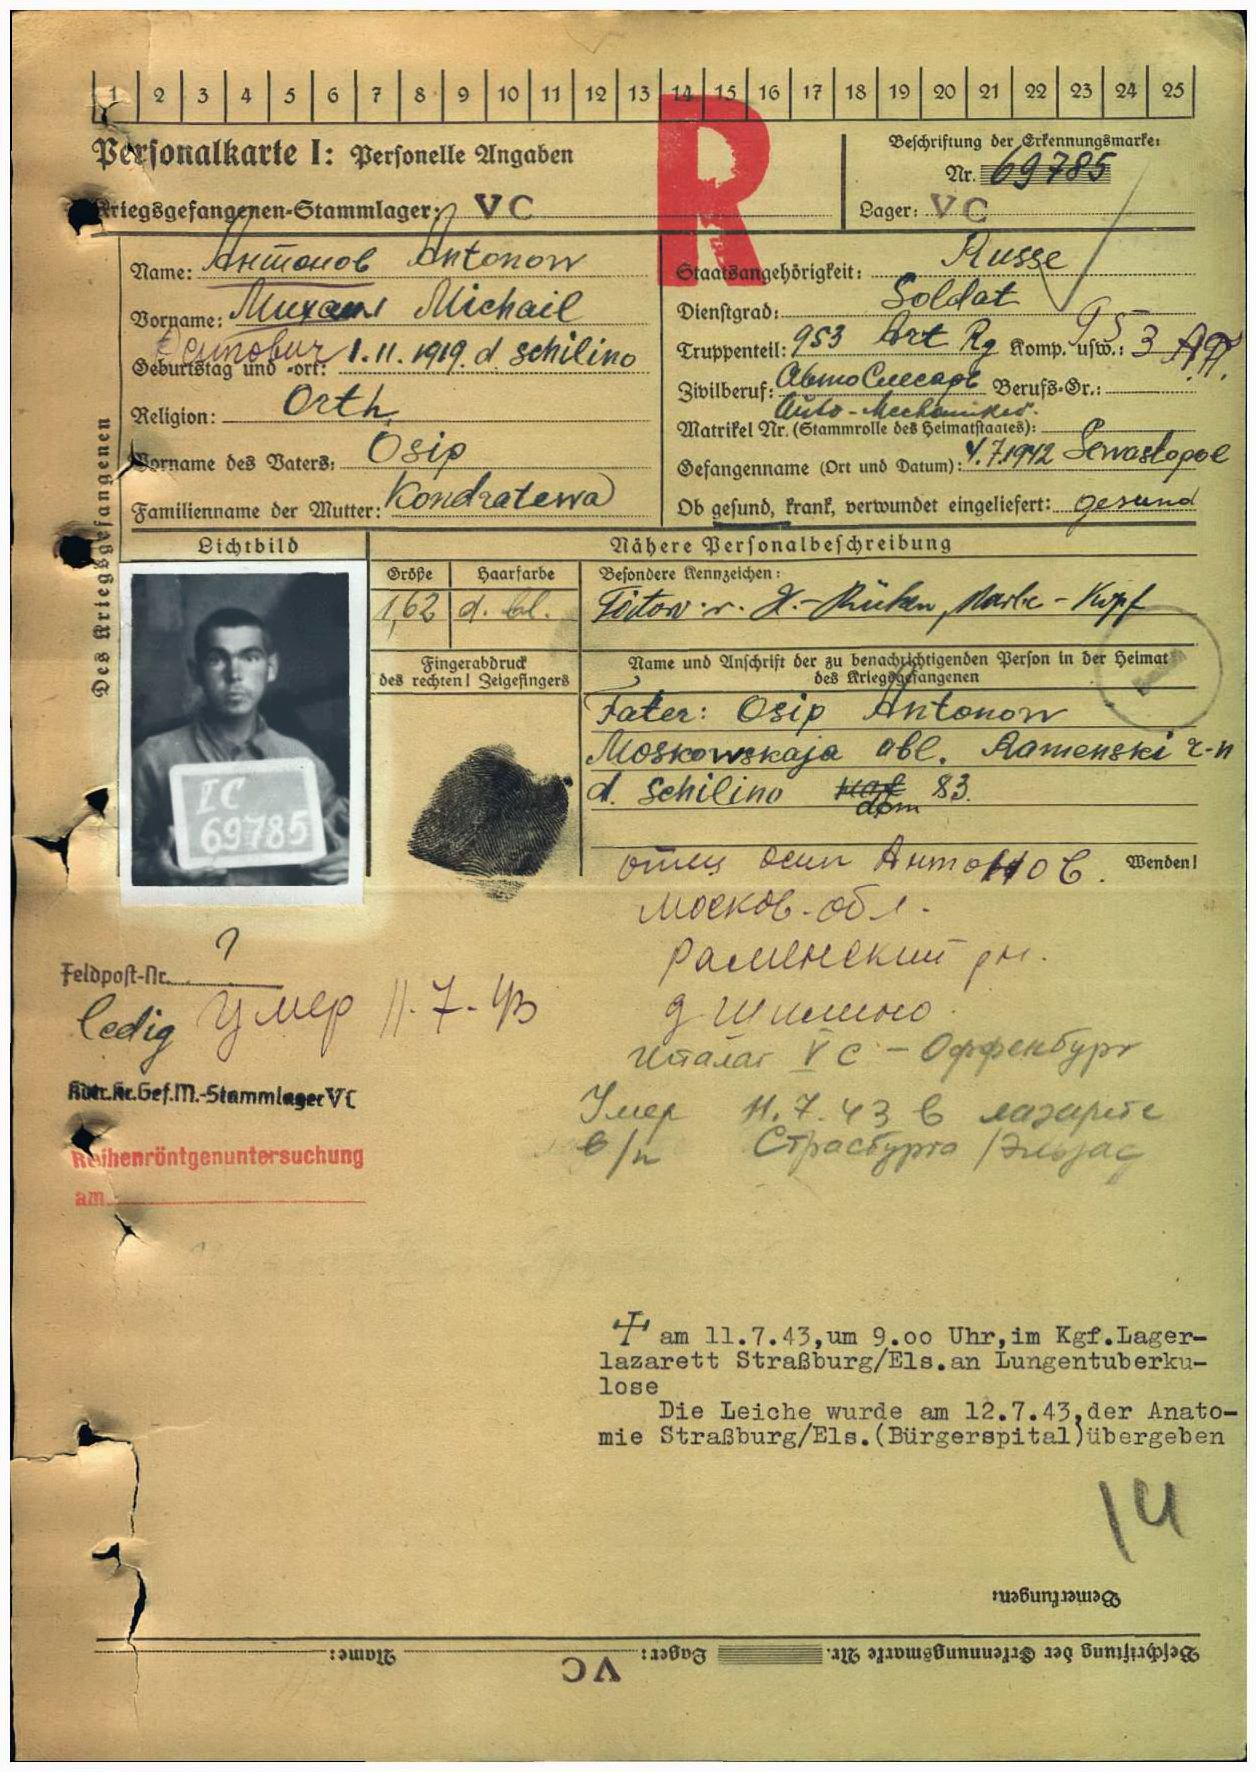 1 2 3 4 5 6 7 8 9 10 11 12 13 14 15 16 17 18 19 20 21 22 23 24 25
R
Personalkarte I: Personelle Angaben
Kriegsgefangenen-Stammlager: VC
Beschriftung der Erkennungsmarke:
Nr. 69785
Lager: VC
Des Kriegsgefangenen
Name: Антонов Antonow
Vorname: Михаил Michail
Осипович
Geburtstag und -ort: 1.11.1919. d. Schilino
Religion: Orth.
Vorname des Vaters: Osip
Familienname der Mutter: Kondratewa
Staatsangehörigkeit: Russe
Dienstgrad: Soldat
Truppenteil: 953 Art Rg Komp. usw.: 953 АП.
Zivilberuf: АвтоСлесарь Berufs-Gr.:
Auto-Mechaniker.
Matrikel Nr. (Stammrolle des Heimatstaates):
Gefangenname (Ort und Datum): 4.7.1942 Sewastopol
Ob gesund, krank, verwundet eingeliefert: gesund
Lichtbild
Nähere Personalbeschreibung
Größe
Haarfarbe
Besondere Kennzeichen:
1,62
d. bl.
r. H.-Rücken, Narbe-Kopf
Fingerabdruck
des rechten! Zeigefingers
Name und Anschrift der zu benachrichtigenden Person in der Heimat
des Kriegsgefangenen
Fater: Osip Antonow
Moskowskaja obl. Ramenski r-n
d. Schilino dom 83.
IC
69785
Wenden!
отец Осип Антонов.
Москов. обл.
Раменский рн.
д Шилино
?
Feldpost-Nr.
ledig
Умер 11.7.43
шталаг VC - Оффенбург
Умер 11.7.43 в лазарете
в/п Страсбурга /Эльзас
Kdtr.Kr.Gef.M.-Stammlager VC
Reihenröntgenuntersuchung
am
am 11.7.43,um 9.oo Uhr,im Kgf.Lager-
lazarett Straßburg/Els.an Lungentuberku-
lose
Die Leiche wurde am 12.7.43,der Anato-
mie Straßburg/Els.(Bürgerspital)übergeben
14
Bemerkungen:
Beschriftung der Erkennungsmarke Nr. Lager: VC Name: